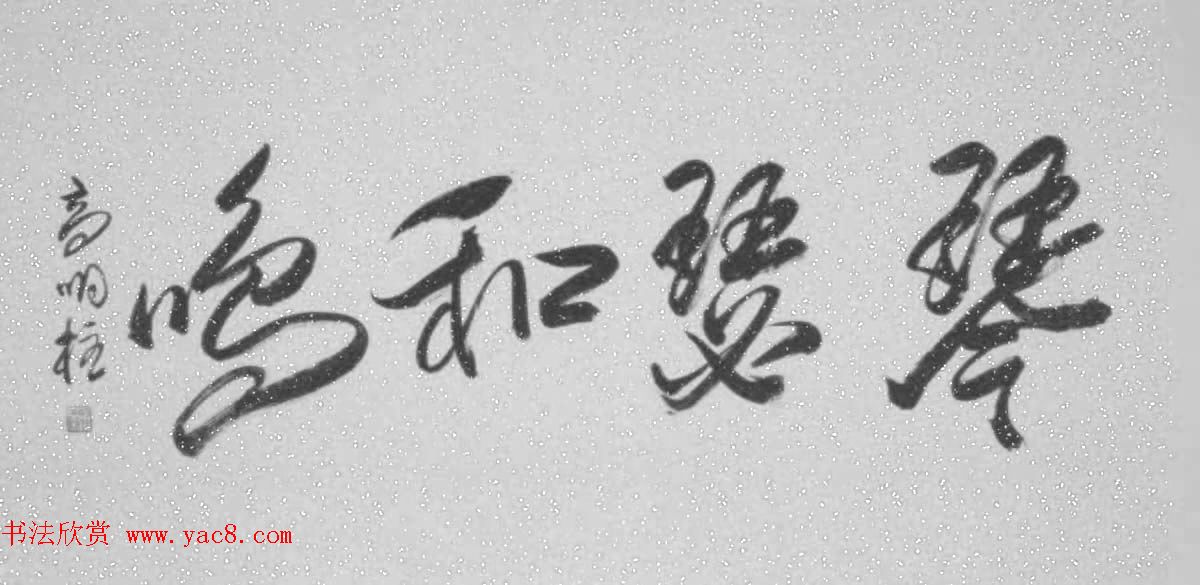 琴瑟和鸣
高明柱
书法欣赏 www.yac8.com